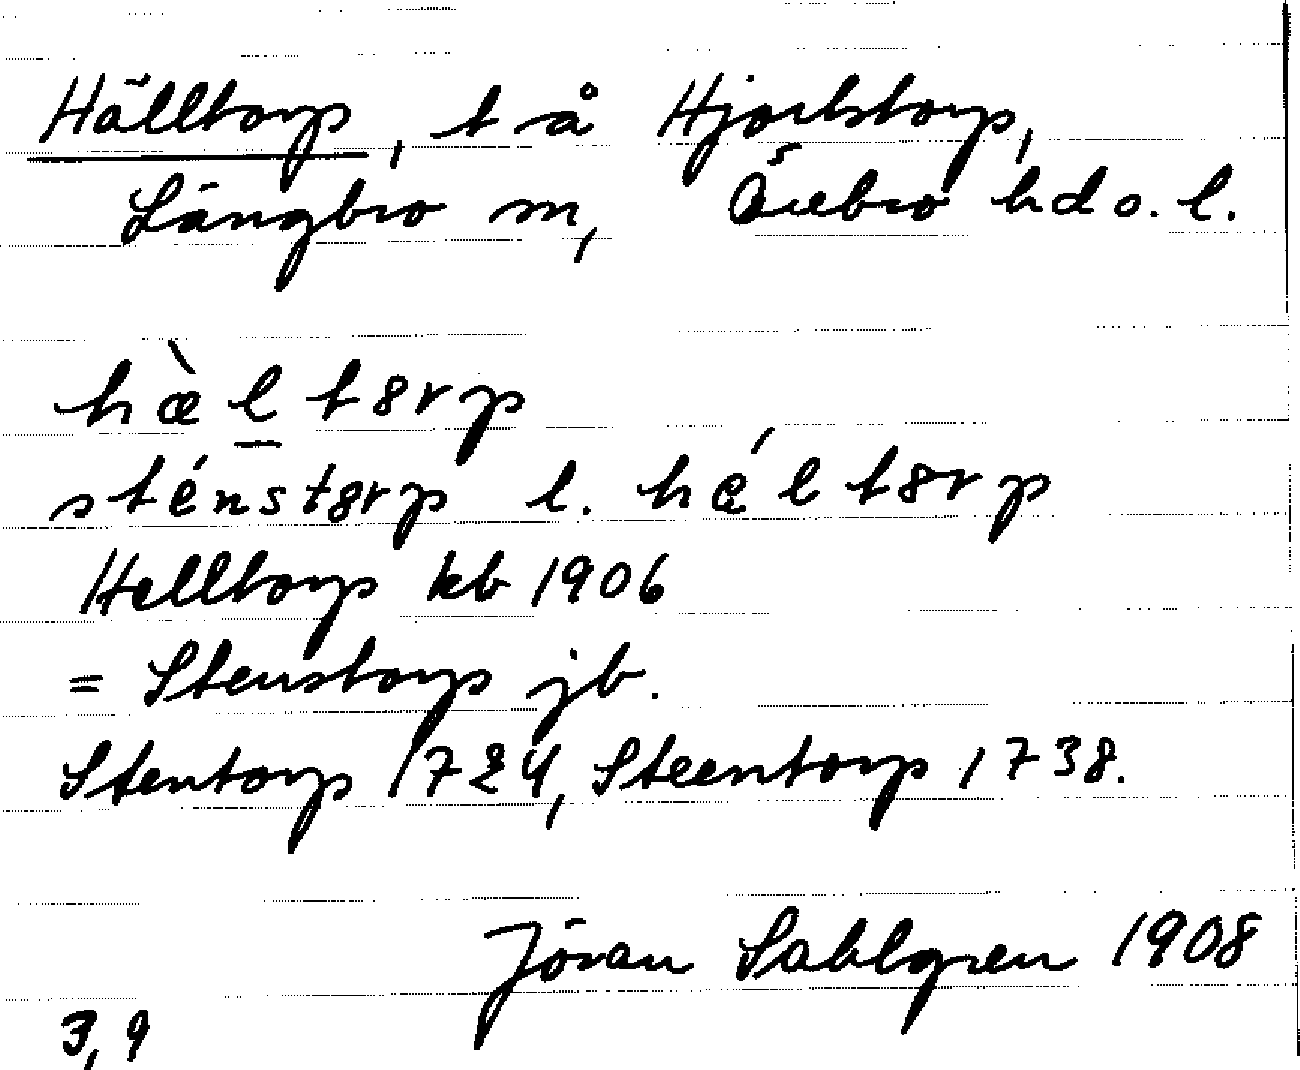 Hälltorp, t så Hjortstorp,
Längbro sn, Örebro hd o. l.
hæ̀l tȣrp
sténstȣrp l. hǽltȣrp
Helltorp kb 1906
= Stenstorp jb.
Stentorp 1724, Steentorp 1738.
Jöran Sahlgren 1908
3,9